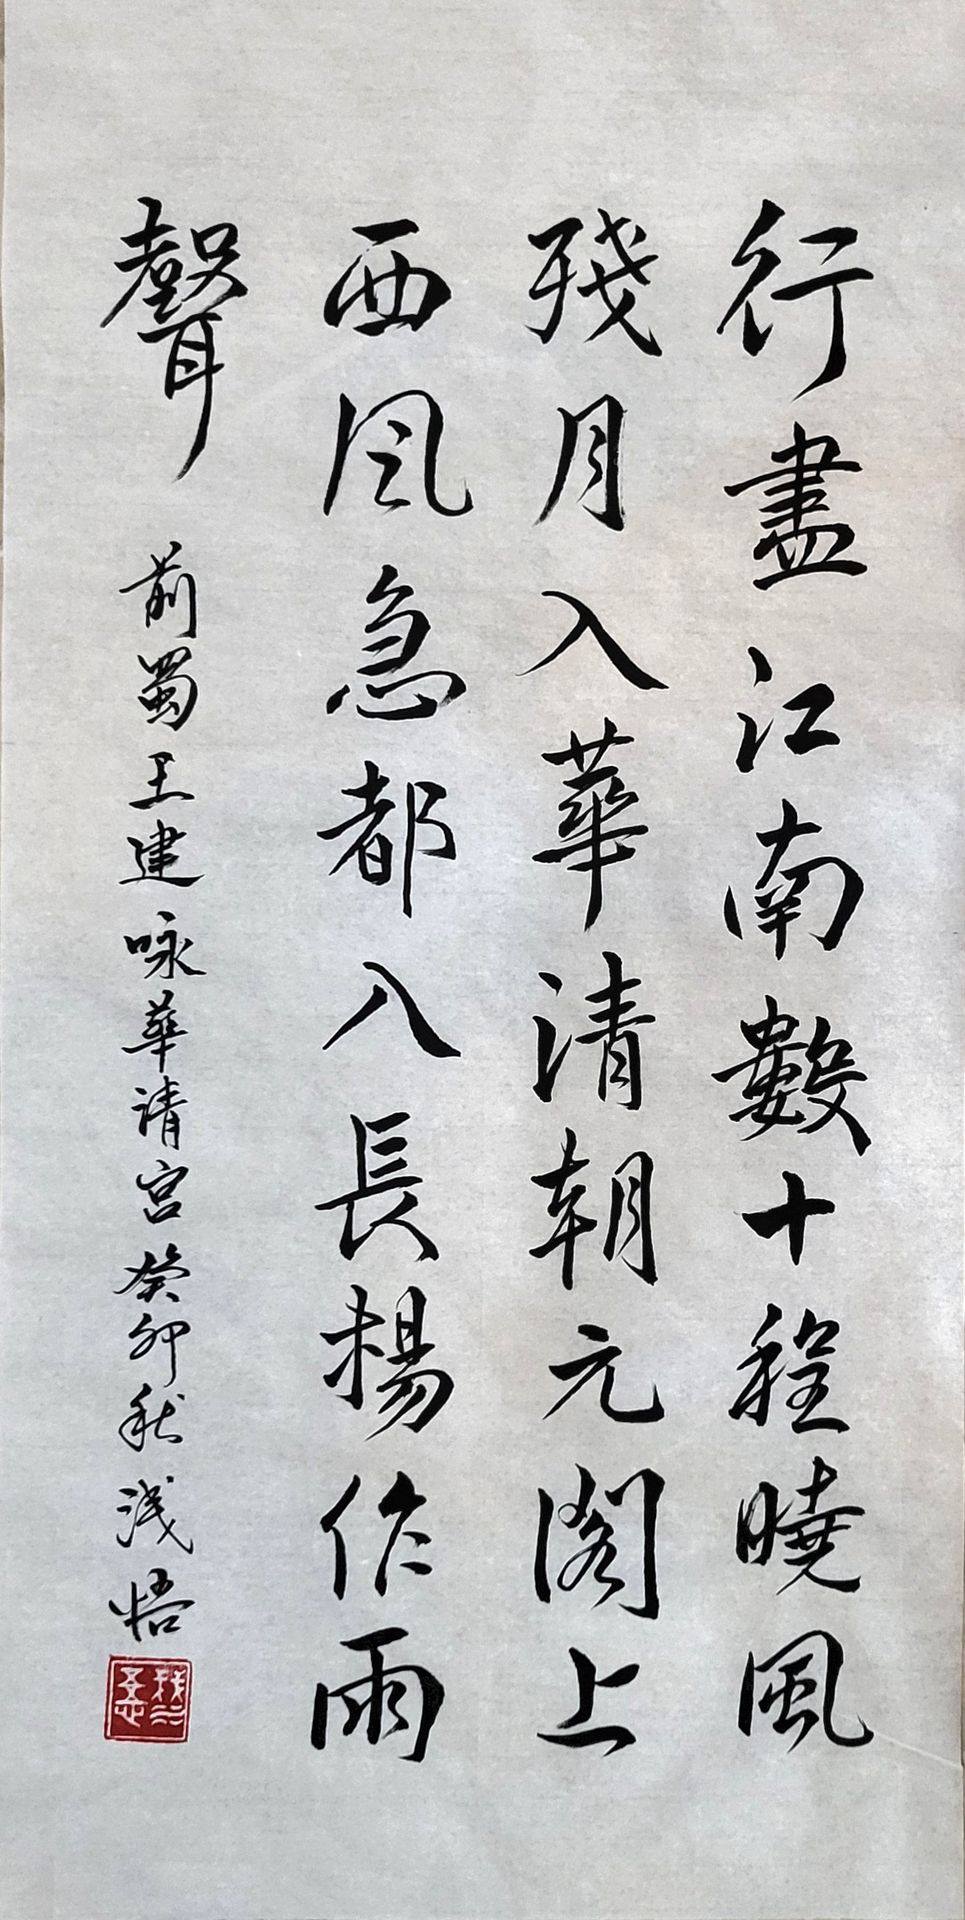 行盡江南數十程曉風
殘月入華清朝元閣上
西风急都入長楊作雨
聲
前蜀王建咏華請宫癸卯秋浅悟